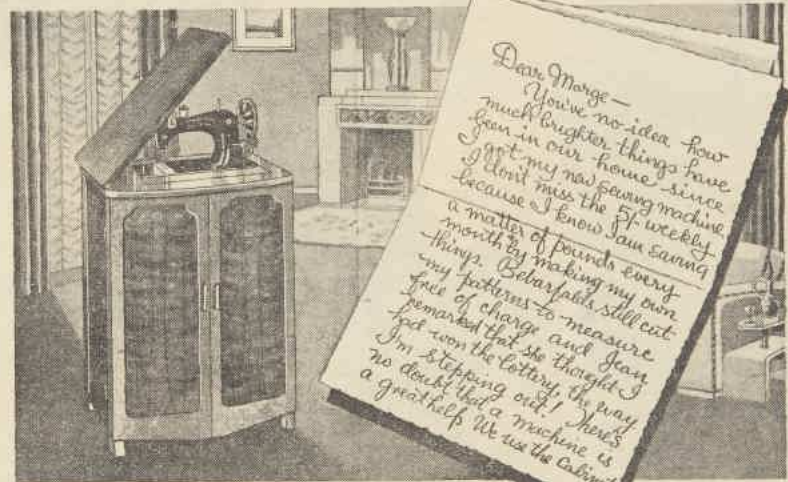 Dear Marge—
You've no idea how
much brighter things have
been in our home since
I got my new sewing machine
I don't miss the 5/- weekly
because I know I am saving
a matter of pounds every
month by making my own
things. Bebarfalds still cut
my patterns to measure
free of charge and Jean
remarked that she thought I
had won the lottery, the way
I'm stepping out! There's
no doubt that a machine is
a great help We use the Cabinet